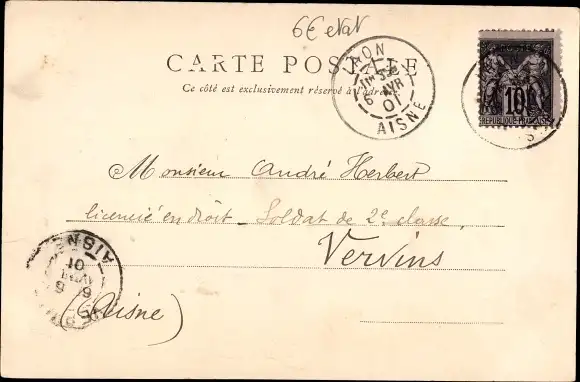 6€ etat
CARTE POSTALE
Ce côté est exclusivement réservé à l'adresse
LAON
6 AVR
01
AISNE
10
REPUBLIQUE FRANÇAISE
Monsieur André Herbert
licencié en droit - Soldat de 2e classe,
Vervins
(Aisne)
AISNE
6
01